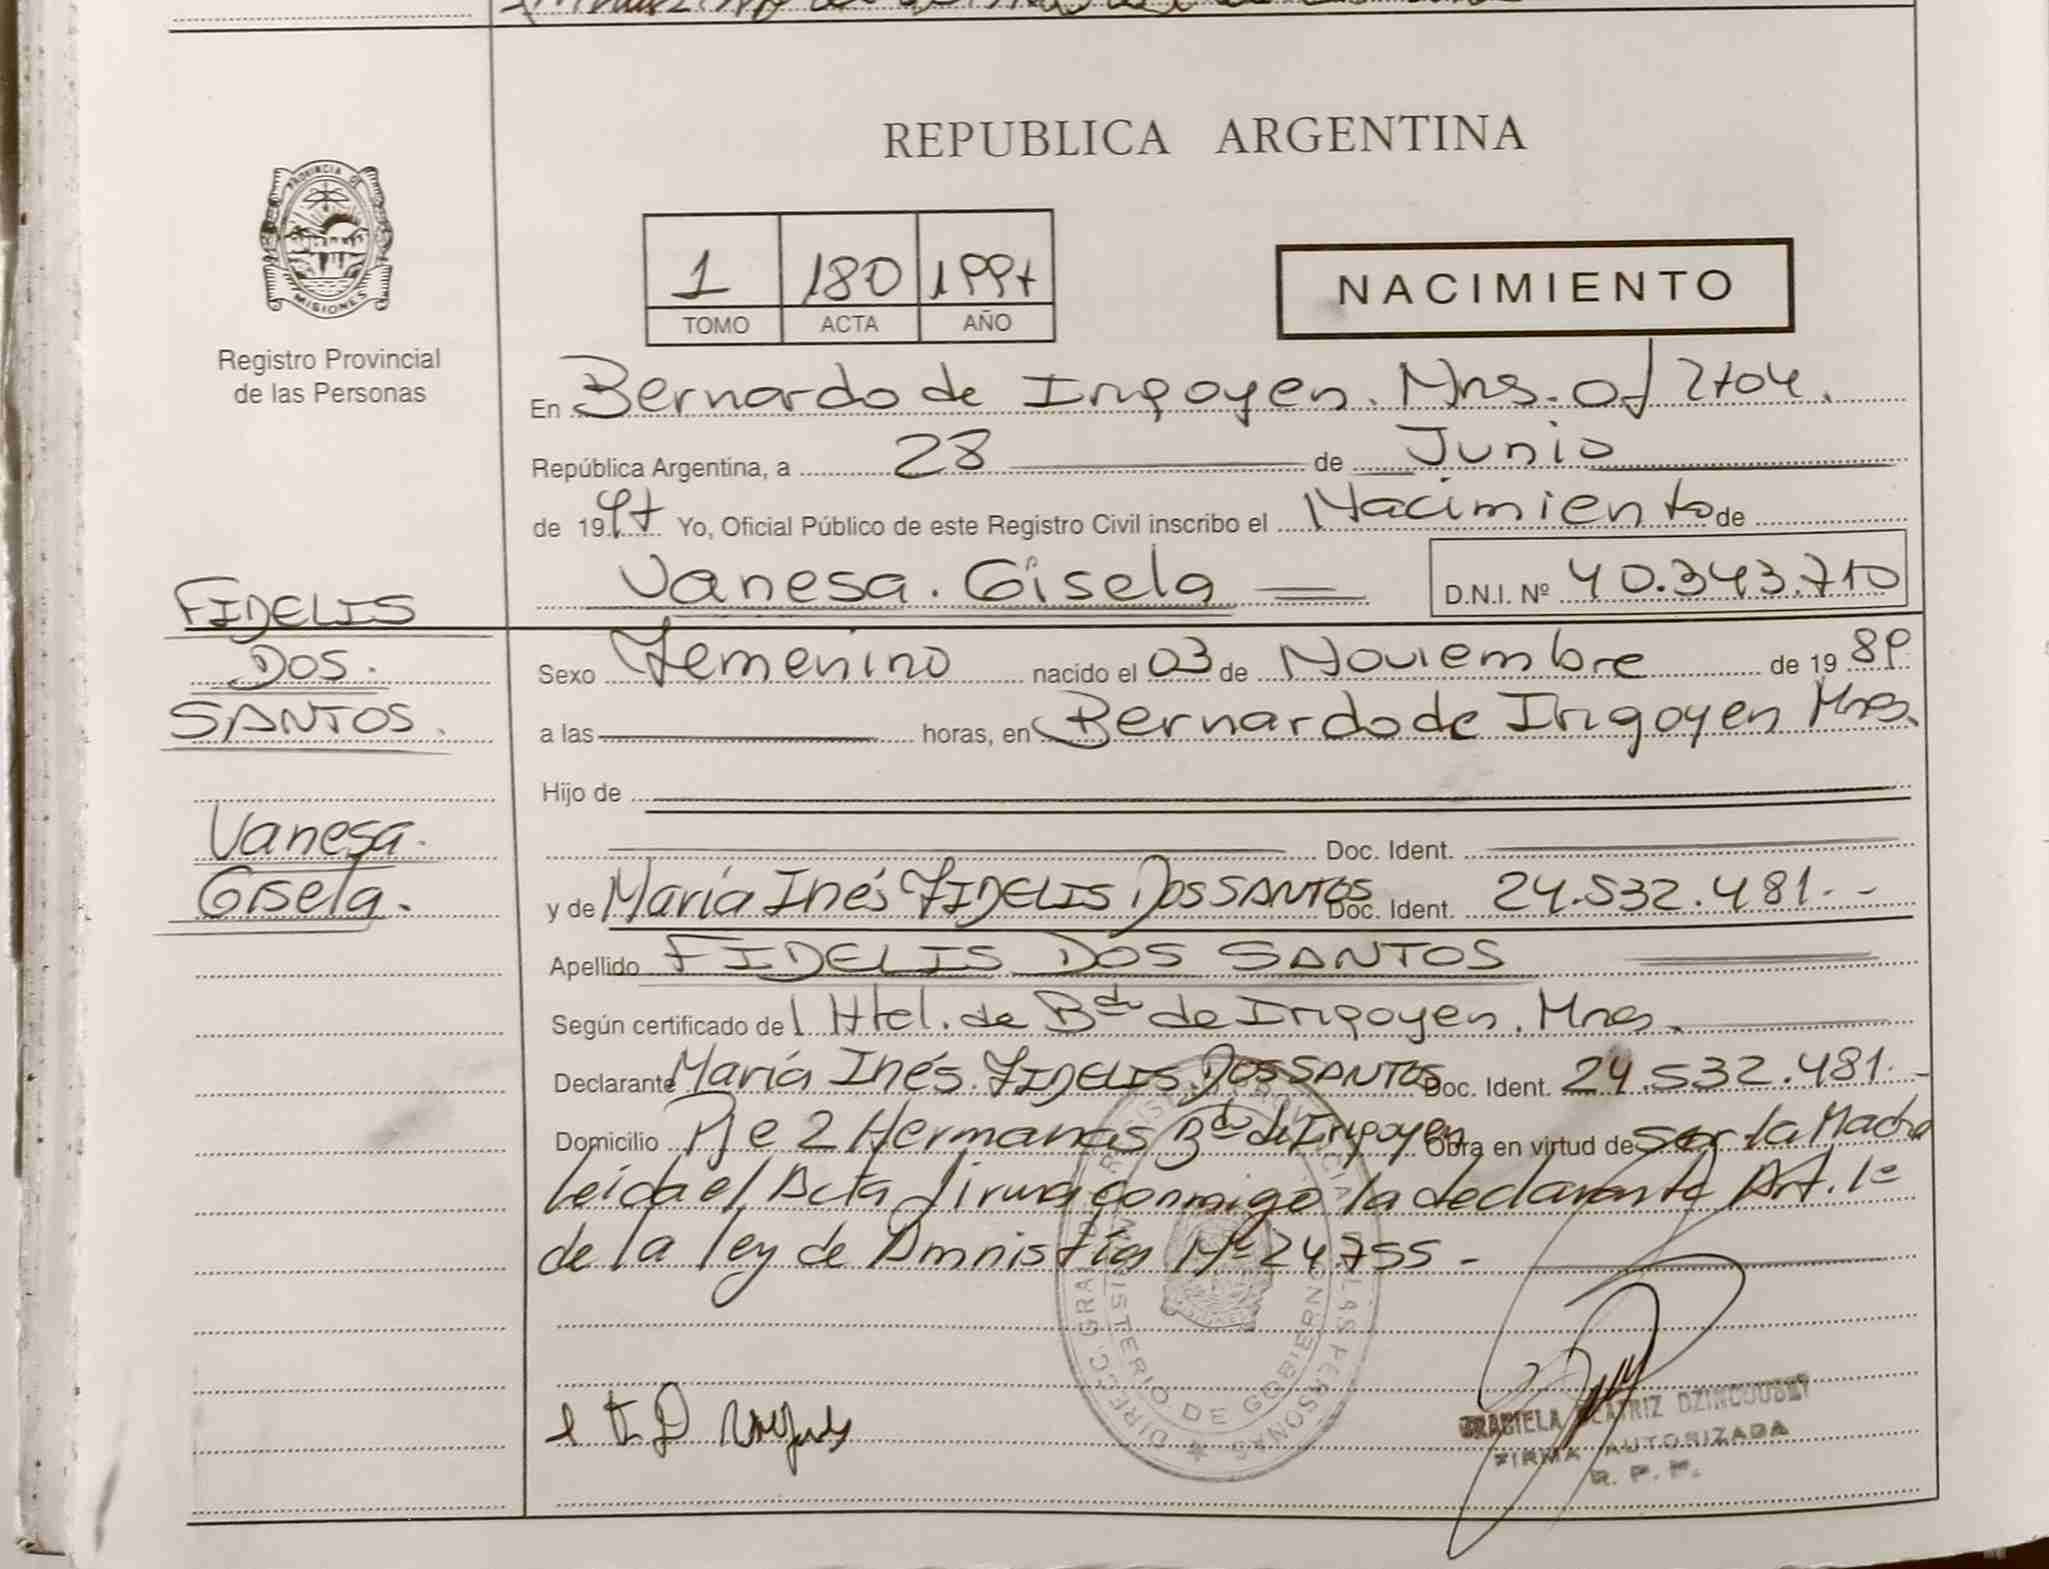 REPUBLICA ARGENTINA
PROVINCIA DE
MISIONES
Registro Provincial
de las Personas
1 180 1997
TOMO ACTA AÑO
NACIMIENTO
En Bernardo de Irigoyen. Mnes. Of 2704.
República Argentina, a 28 de Junio
de 1997 Yo, Oficial Público de este Registro Civil inscribo el Nacimiento de
Vanesa. Gisela D.N.I. Nº 40.343.710
FIDELIS
DOS.
SANTOS.
Vanesa.
Gisela.
Sexo Femenino nacido el 03 de Noviembre de 1989
a las horas, en Bernardo de Irigoyen Mnes.
Hijo de
Doc. Ident.
y de María Inés FIDELIS DOS SANTOS Doc. Ident. 24.532.481.--
Apellido FIDELIS DOS SANTOS
Según certificado del Htal. de Bdo de Irigoyen. Mnes.
Declarante María Inés. FIDELIS. DOS SANTOS Doc. Ident. 24.532.481.-
Domicilio Pje 2 Hermanas Bdo de Irigoyen Obra en virtud de ser la Madre
leída el Acta firma conmigo la declarante Art. 1º
de la ley de Amnistía Nº 24.755 -
DIRECC. GRAL. REGISTRO PROVINCIAL DE LAS PERSONAS
MINISTERIO DE GOBIERNO
GRACIELA BEATRIZ
FIRMA AUTORIZADA
R. P. P.